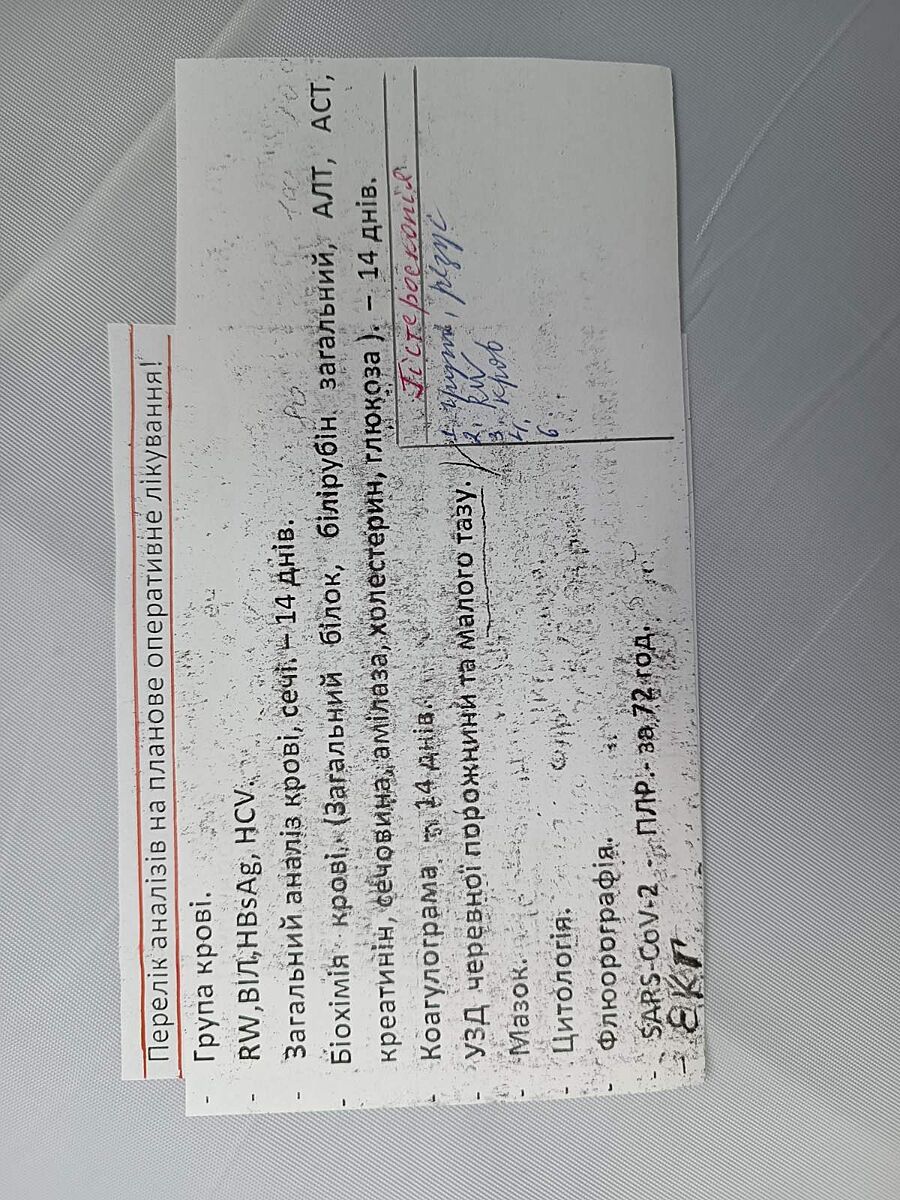 Перелік аналізів на планове оперативне лікування!
- Група крові.
- RW,ВІЛ,HBsAg, HCV.
- Загальний аналіз крові, сечі. – 14 днів.
- Біохімія крові. (Загальний білок, білірубін загальний, АЛТ, АСТ,
креатинін, сечовина, амілаза, холестерин, глюкоза ). – 14 днів.
- Коагулограма. – 14 днів.
- УЗД черевної порожнини та малого тазу.
- Мазок.
- Цитологія.
- Флюорографія.
- SARS-CoV-2 - ПЛР.- за 72 год.
- ЕКГ
Гістероскопія
1. група, резус
2. RW
3. кров
4,
6